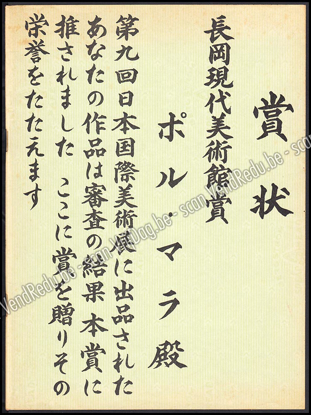 賞状
長岡現代美術館賞
ポル・マラ殿
第九回日本国際美術展に出品された
あなたの作品は審査の結果本賞に
推されました ここに賞を贈りその
栄誉をたたえます